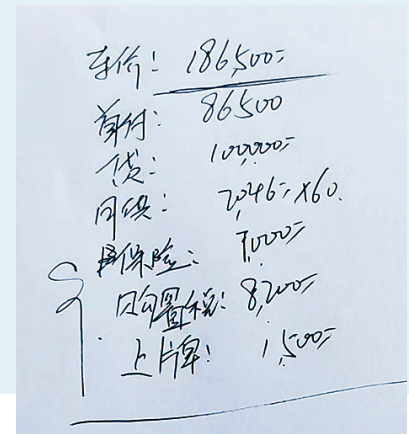 车价: 186,500=
首付: 86500
贷: 100,000=
月供: 2,046= ×60.
保险: 7,000=
购置税: 8,200=
上牌: 1,500=